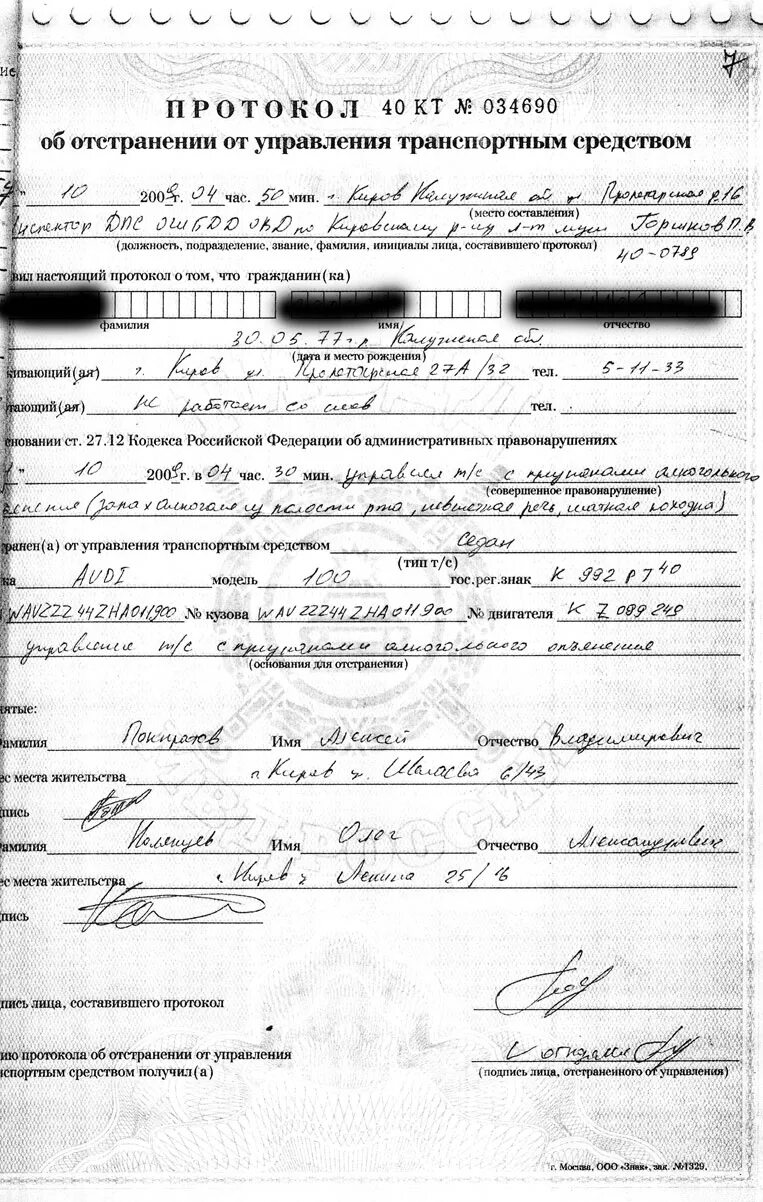 7
ПРОТОКОЛ 40 КТ № 034690
об отстранении от управления транспортным средством
" 10 2009г. 04 час. 50 мин. г. Киров Калужская ул. Пролетарская д.16
(место составления)
Инспектор ДПС ОГИБДД ОВД по Кировскому р-ну л-т мил Горшков П.В
(должность, подразделение, звание, фамилия, инициалы лица, составившего протокол)
40-0789
вил настоящий протокол о том, что гражданин(ка)
фамилия имя отчество
30.05.77 г.р Калужская обл.
(дата и место рождения)
живающий(ая) г. Киров ул. Пролетарская 27А/32 тел. 5-11-33
тающий(ая) не работает со слов тел.
сновании ст. 27.12 Кодекса Российской Федерации об административных правонарушениях
" 10 2009г. в 04 час. 30 мин. управлял т/с с признаками алкогольного
(совершенное правонарушение)
(запах алкоголя из полости рта, невнятная речь, шаткая походка)
ранен(а) от управления транспортным средством Седан
(тип т/с)
ка AUDI модель 100 гос.рег.знак К 992 РТ 40
WAVZZZ44ZHA011900 № кузова WAVZZZ44ZHA011900 № двигателя KZ099249
управление т/с с признаками алкогольного опьянения
(основания для отстранения)
нятые:
амилия Имя Алексей Отчество Владимирович
ес места жительства г. Киров ул. 6/43
пись
амилия Имя Олег Отчество Александрович
ес места жительства г. Киров ул Ленина 25/
пись
пись лица, составившего протокол
ию протокола об отстранении от управления
нспортным средством получил(а)
(подпись лица, отстраненного от управления)
г. Москва, ООО «Знак», зак. №1329.